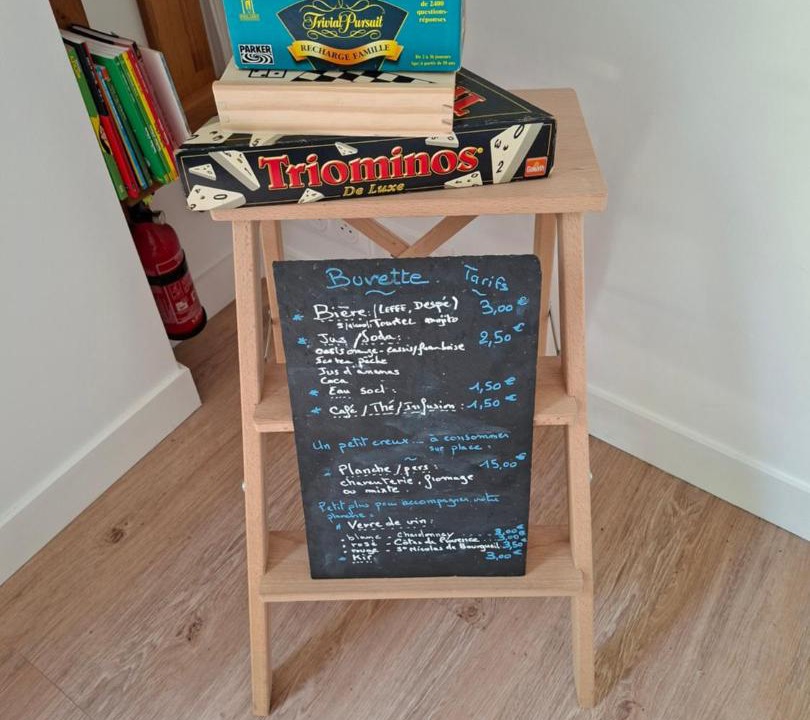 de 2400
questions-
réponses
Trivial Pursuit
PARKER
RECHARGE FAMILLE
De 2 à 36 joueurs
Triominos
De Luxe
Goliath
Buvette Tarifs
* Bière: (Leffe, Despé) 3,00€
s/alcool: Tourtel mojito
* Jus/Soda: 2,50€
oasis orange - cassis/framboise
Ice tea pêche
Jus d'ananas
Coca
* Eau sod: 1,50€
* Café/Thé/Infusion: 1,50€
Un petit creux... à consommer
sur place.
Planche/pers: 15,00€
charcuterie, fromage
ou mixte.
Petit plus pour accompagner votre
planche.
* Verre de vin:
. blanc - Chardonnay 3,00€
. rosé - Côtes de Provence 3,00€
. rouge - St Nicolas de Bourgueil 3,50€
* Kir: 3,00€